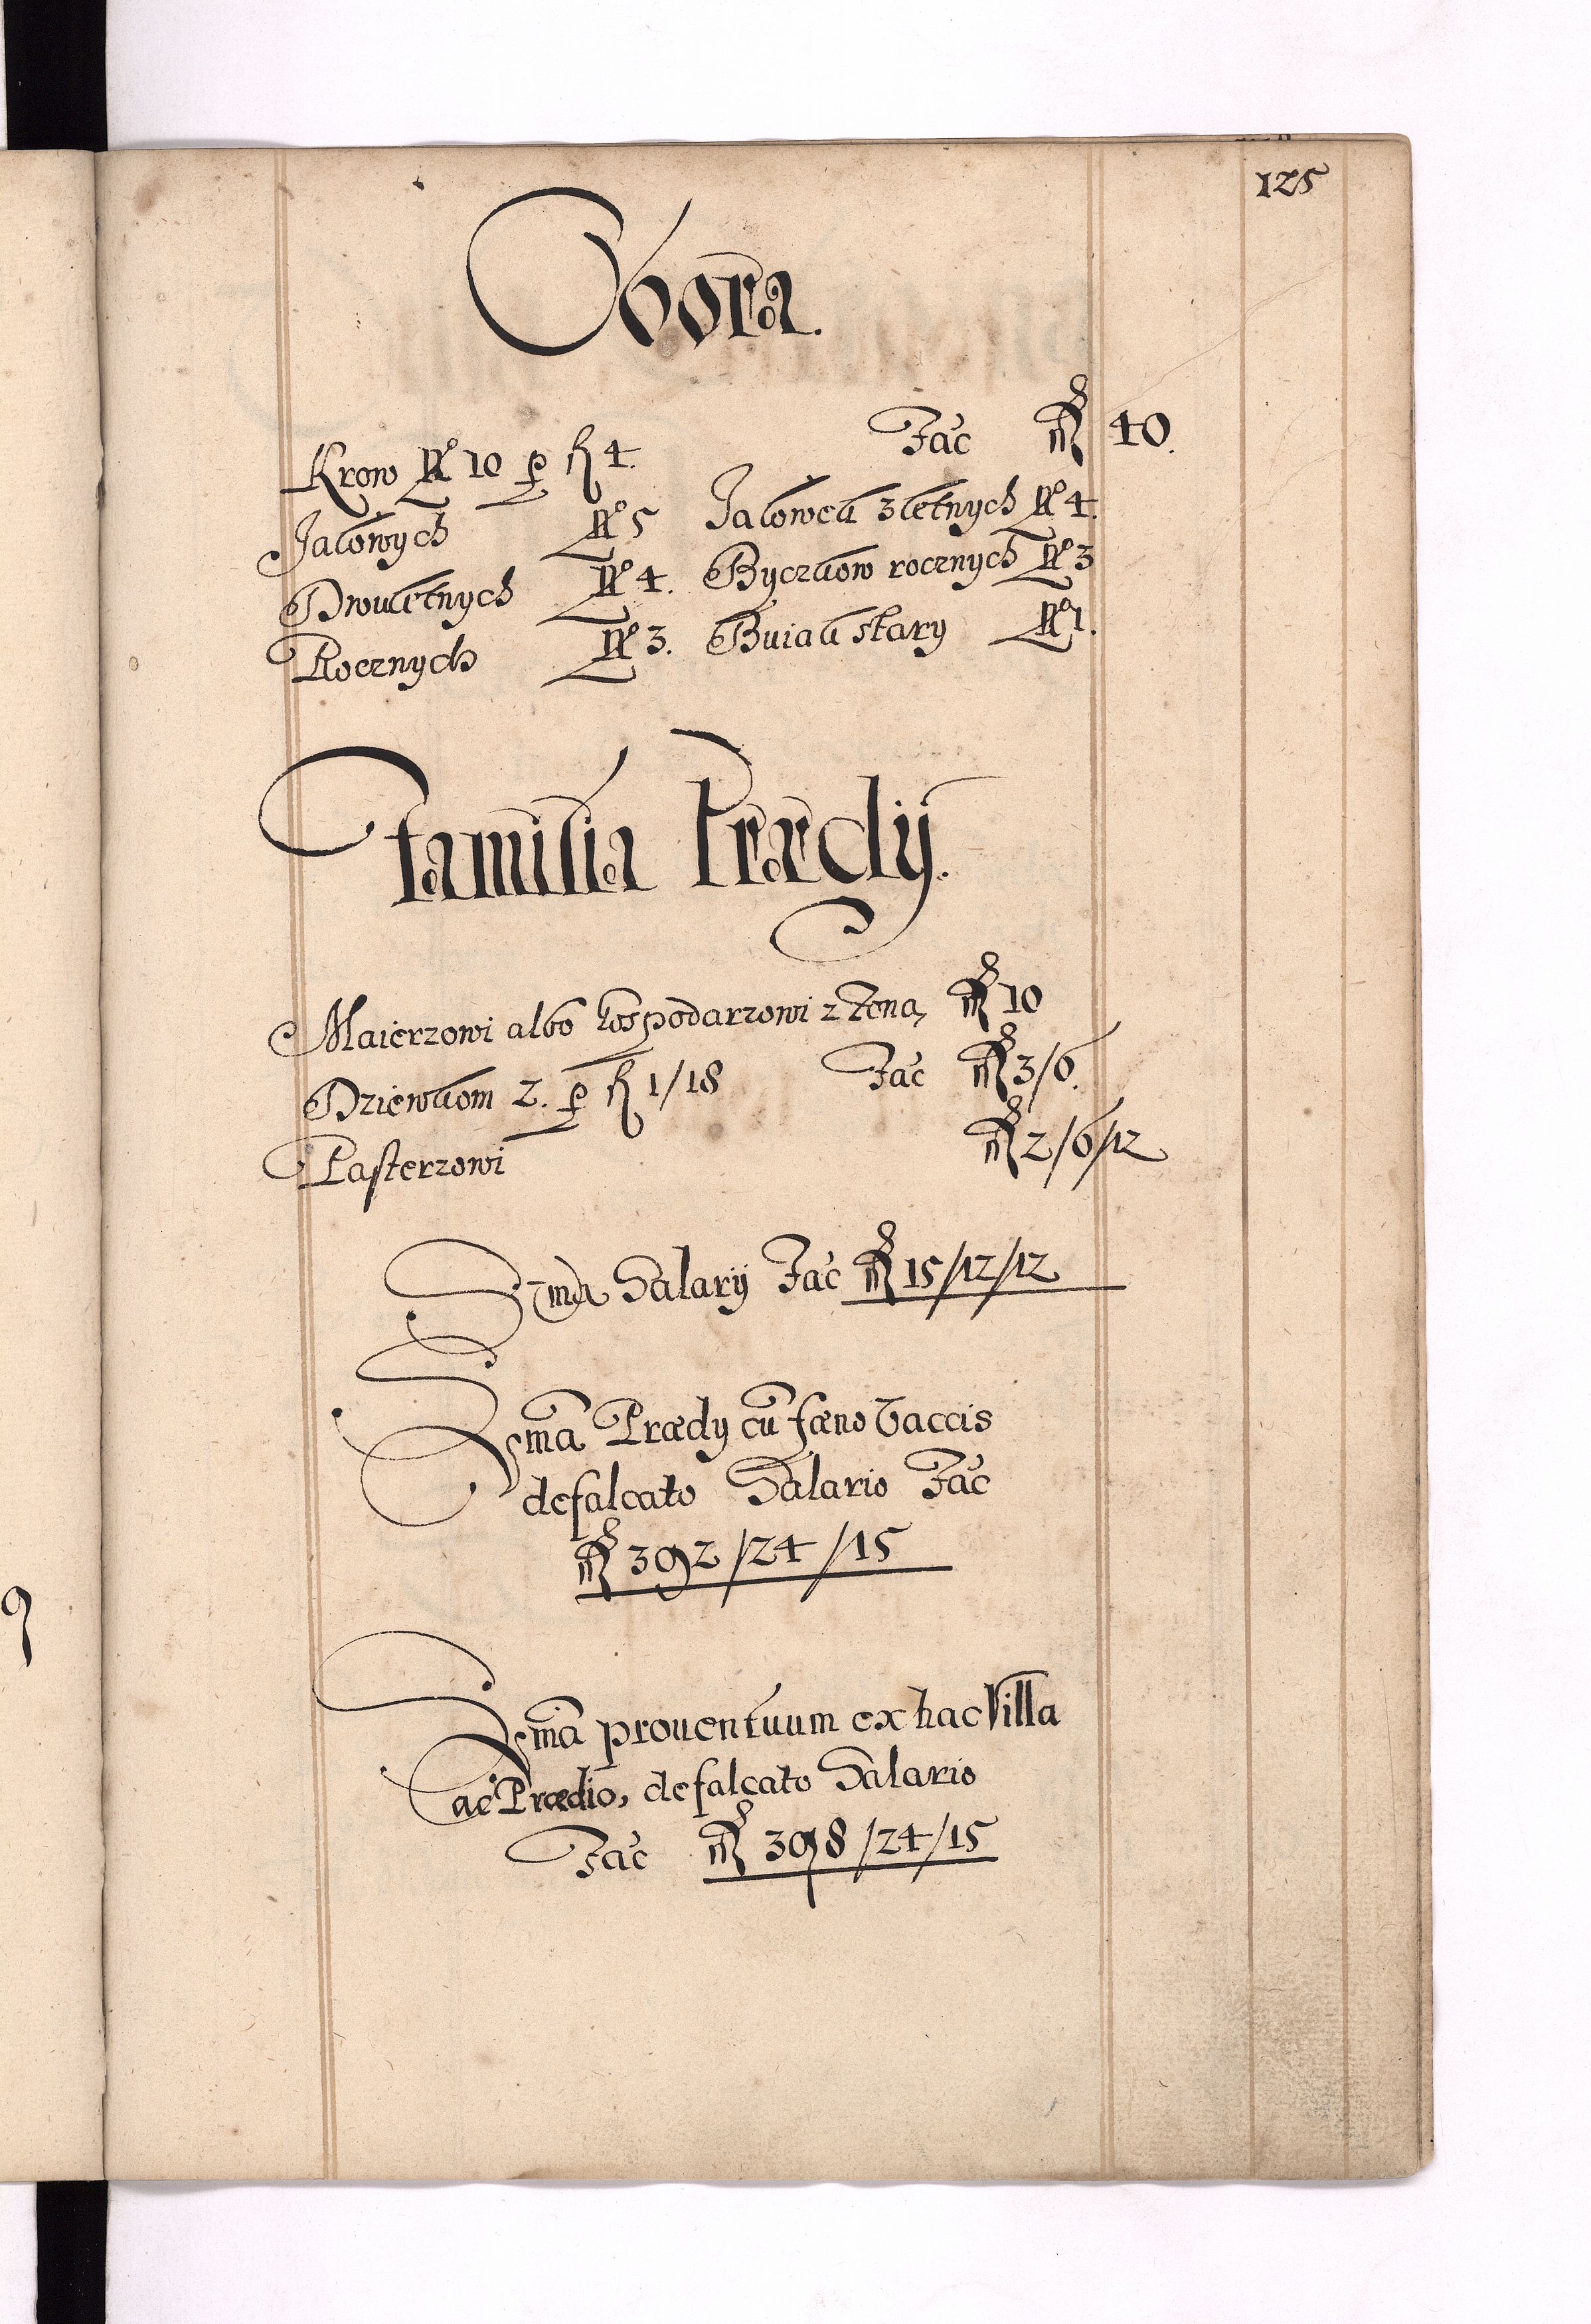 125
Obora.
Krow No 10 p fl 4. Fac fl 40.
Jalowych No 5 Jalowek 3letnych No 4.
Dwuletnych No 4. Byczkow rocznych No 3
Rocznych No 3. Buiak stary No 1.
Familia Prædij.
Maierzowi albo Gospodarzowi z Zoną fl 10
Dziewkom 2. p fl 1/18 Fac fl 3/6.
Pasterzowi fl 2/6/12
Sūma Salarij Fac fl 15/12/12
Sūma Prædij cū fæno Vaccis
defalcato Salario Fac
fl 392/24/15
Sūma prouentuum ex hac Villa
ac Prædio, defalcato Salario
Fac fl 398/24/15